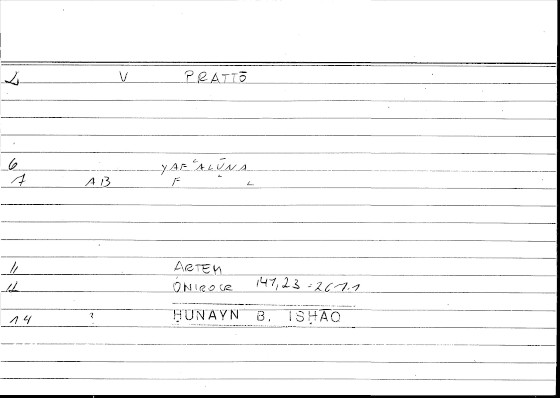 2 V PRATTŌ
6 yAFʿALŪNA
7 AB F L
11 ARTEM
12 ONIROCR 147,23 = 267.1
14 ? ḤUNAYN B. ISḤĀQ